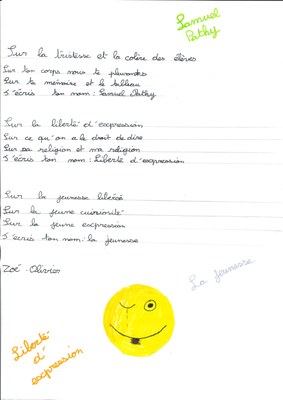 Samuel
Pathy
Sur la tristesse et la colère des élèves
Sur ton corps nous te pleurondes
Sur ta mémoire et le tableau
J'écris ton nom : Samuel Pathy
Sur la liberté d'expression
Sur ce qu'on a le droit de dire
Sur sa religion et ma religion
J'écris ton nom : Liberté d'expression
Sur la jeunesse libéré
Sur la jeune curiosité
Sur la jeune expression
J'écris ton nom : la jeunesse
Zoé Olivier
La jeunesse
Liberté
d'
expression